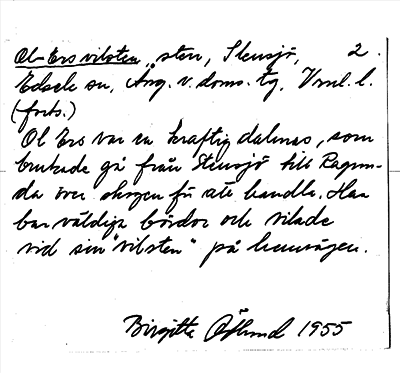 Ol-Ers vilsten, sten, Stensjö, 2.
Edsele sn, Ång. v. doms. tg, Vrnl. l.
(forts.)
Ol Ers var en kraftig dalmas, som
brukade gå från Stensjö till Ragun-
da över skogen för att handla. Han
bar väldiga bördor och vilade
vid sin "vilsten" på hemvägen.
Birgitta 1955